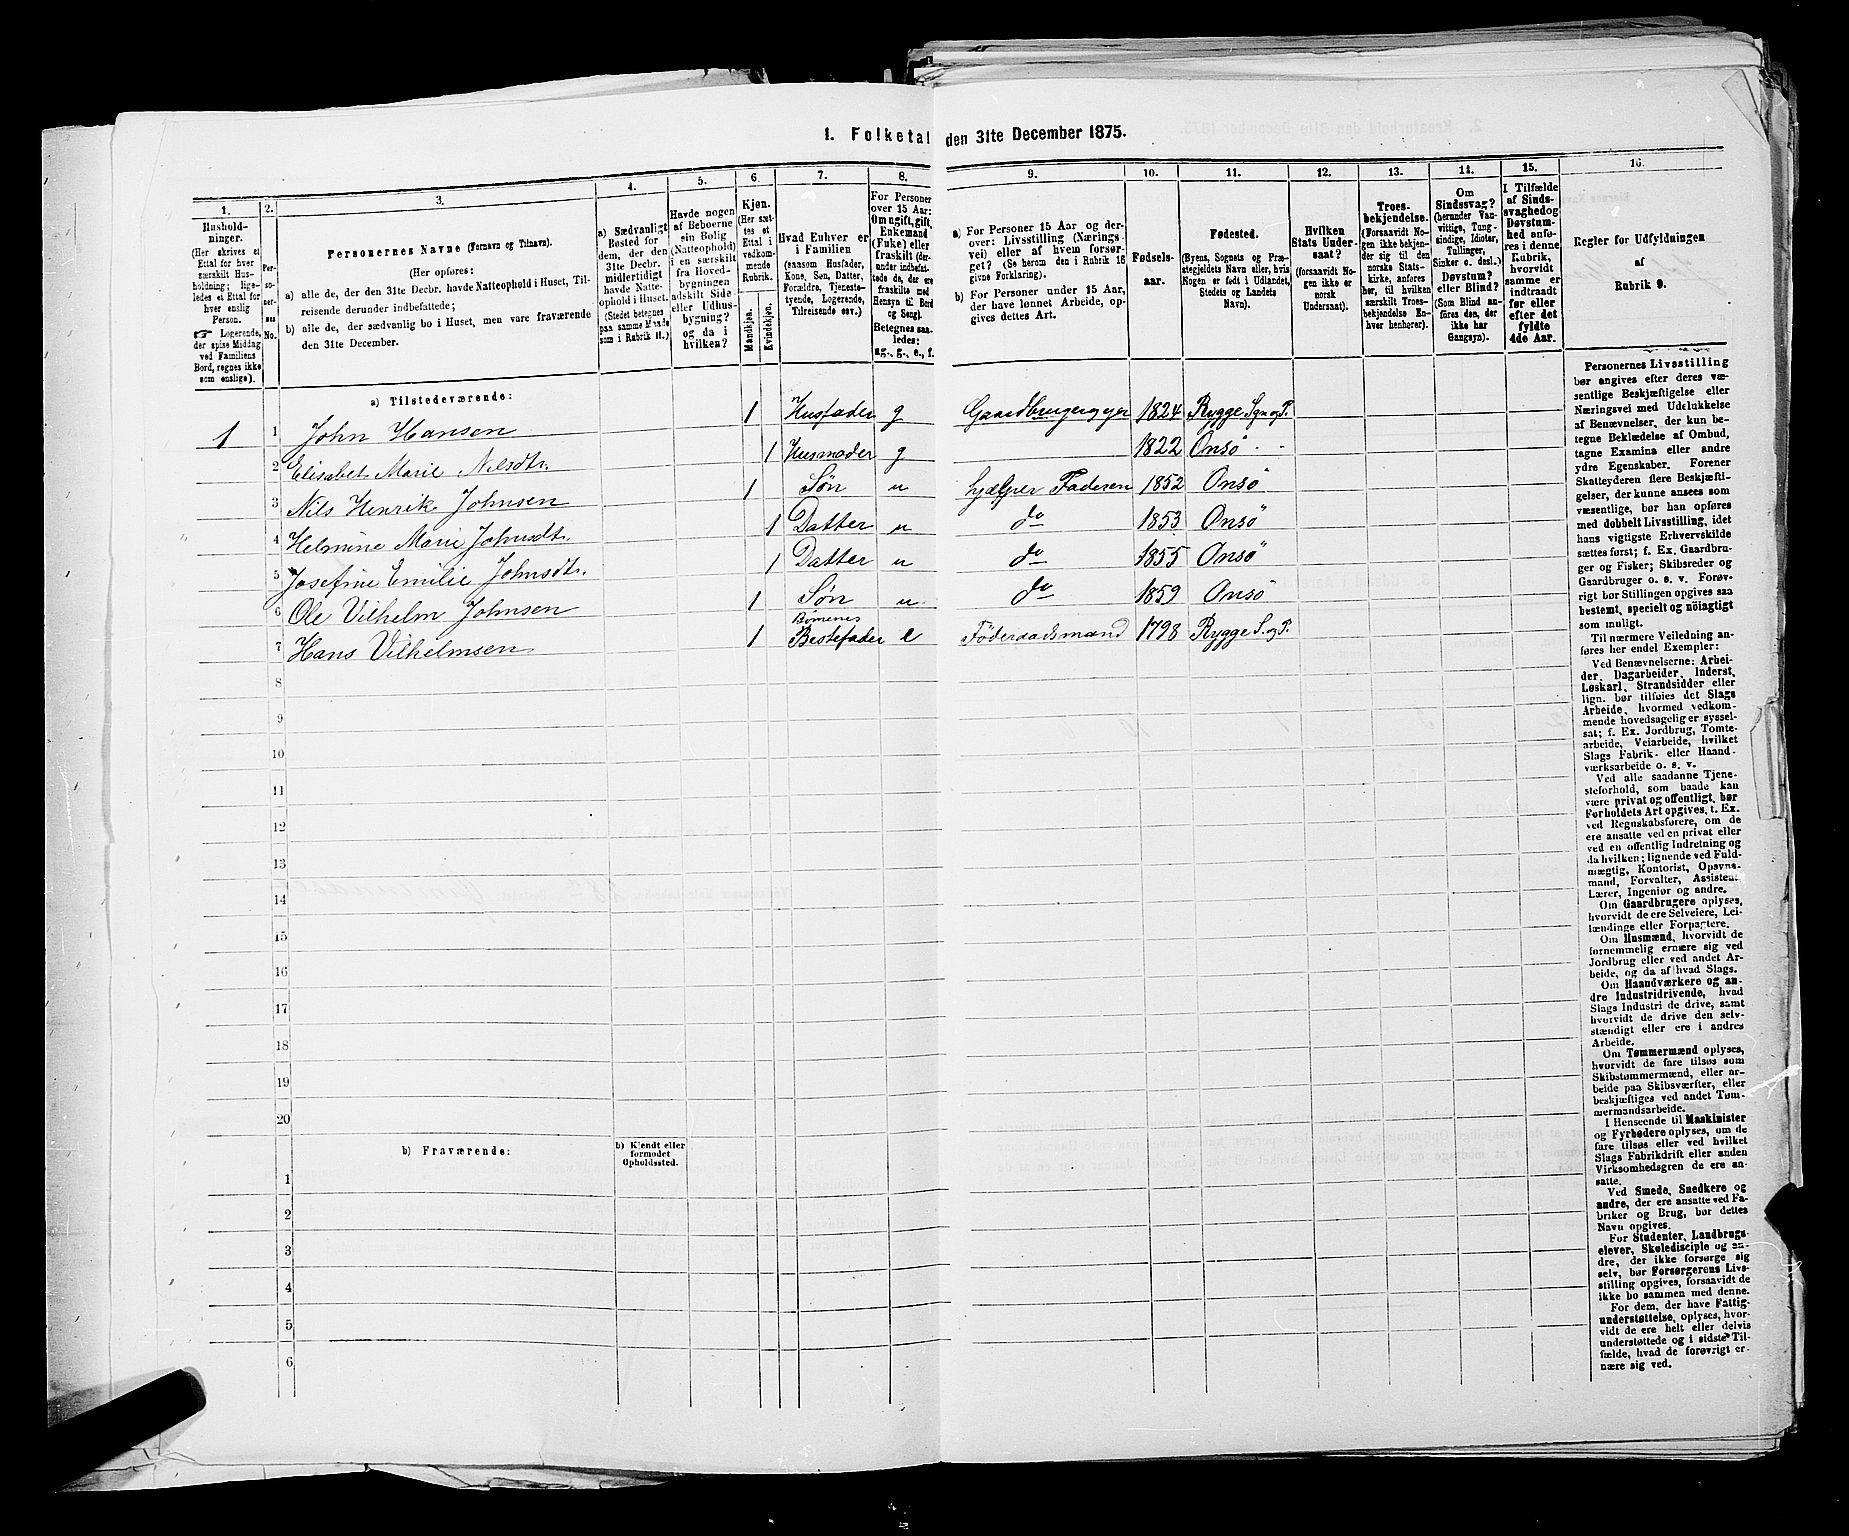 1. Folketal den 31te December 1875.
1.
2.
3.
4.
5.
6.
7.
8.
9.
10.
11.
12.
13.
14.
15.
16.
Hushold-
ninger.
(Her skrives et
Ettal for hver
særskilt Hus-
holdning; lige-
ledes et Ettal for
hver enslig
Person.
☞ Logerende,
der spise Middag
ved Familiens
Bord, regnes ikke
som enslige).
Per-
so-
ner-
nes
No.
Personernes Navne (Fornavn og Tilnavn).
(Her opføres:
a) alle de, der den 31te Decbr. havde Natteophold i Huset, Til-
reisende derunder indbefattede;
b) alle de, der sædvanlig bo i Huset, men vare fraværende
den 31te December.
a) Sædvanligt
Bosted for
dem, der den
31te Decbr.
midlertidigt
havde Natte-
ophold i Huset.
(Stedet betegnes
paa samme Maade
som i Rubrik 11.)
Havde nogen
af Beboerne
sin Bolig
(Natteophold)
i en særskilt
fra Hoved-
bygningen
adskilt Side
eller Udhus-
bygning?
og da i
hvilken?
Kjøn.
(Her sæt-
tes et
Ettal i
vedkom-
mende
Rubrik.
Mandkjøn.
Kvindekjøn.
Hvad Enhver er
i Familien
(saasom Husfader,
Kone, Søn, Datter,
Forældre, Tjeneste-
tyende, Logerende,
Tilreisende osv.)
For Personer
over 15 Aar:
Om ugift, gift,
Enkemand
(Enke) eller
fraskilt (der-
under indbefat-
tede de, der ere
fraskilte med
Hensyn til Bord
og Seng).
Betegnes saa-
ledes:
ug., g., e., f.
a) For Personer 15 Aar og der-
over: Livsstilling (Nærings-
vei) eller af hvem forsør-
get? (Se herom den i Rubrik 16
givne Forklaring).
b) For Personer under 15 Aar,
der have lønnet Arbeide, op-
gives dettes Art.
Fødsels-
aar.
Fødested.
(Byens, Sognets og Præ-
stegjeldets Navn eller, hvis
Nogen er født i Udlandet,
Stedets og Landets
Navn).
Hvilken
Stats Under-
saat?
(forsaavidt No-
gen ikke er
norsk
Undersaat).
Troes-
bekjendelse.
(Forsaavidt No-
gen ikke bekjen-
der sig til den
norske Stats-
kirke, anføres
her, til hvilken
særskilt Troes-
bekjendelse En-
hver henhører).
Om
Sindssvag?
(herunder Van-
vittige, Tung-
sindige, Idioter,
Tullinger,
Sinker o. desl.)
Døvstum?
eller Blind?
(Som Blind an-
føres den, der
ikke har
Gangsyn).
I Tilfælde
af Sinds-
svaghed og
Døvstum-
hed anfø-
res i denne
Rubrik,
hvorvidt
samme er
indtraadt
før eller
efter det
fyldte
4de Aar.
Regler for Udfyldningen
af
Rubrik 9.
a) Tilstedeværende:
1 1 John Hansen 1 Husfader g Gaardbruger og ejer 1824 Rygge Sgn og P.
2 Elisabet Marie Nilsdtr. 1 Husmoder g 1822 Onsö - -
3 Nils Henrik Johnsen 1 Søn u hjælper Faderen 1852 Onsö
4 Helmine Marie Johnsdtr. 1 Datter u do 1853 Onsö
5 Josefine Emilie Johnsdtr. 1 Datter u do 1855 Onsö
6 Ole Vilhelm Johnsen 1 Søn u do 1859 Onsö
7 Hans Vilhelmsen 1 Börnenes Bestefader e Föderaadsmand 1798 Rygge S. og P.
8
9
10
11
12
13
14
15
16
17
18
19
20
b) Fraværende:
b) Kjendt eller
formodet
Opholdssted.
1
2
3
4
5
6
Personernes Livsstilling
bør angives efter deres væ-
sentlige Beskjæftigelse eller
Næringsvei med Udelukkelse
af Benævnelser, der kun be-
tegne Beklædelse af Ombud,
tagne Examina eller andre
ydre Egenskaber. Forener
Skatteyderen flere Beskjæfti-
gelser, der kunne ansees som
væsentlige, bør han opføres
med dobbelt Livsstilling, idet
hans vigtigste Erhvervskilde
sættes først; f. Ex. Gaardbru-
ger og Fisker; Skibsreder og
Gaardbruger o. s. v. Forøv-
rigt bør Stillingen opgives saa
bestemt, specielt og nöiagtigt
som muligt.
Til nærmere Veiledning an-
føres her endel Exempler:
Ved Benævnelserne: Arbei-
der, Dagarbeider, Inderst,
Løskarl, Strandsidder eller
lign. bør tilføies det Slags
Arbeide, hvormed vedkom-
mende hovedsagelig er syssel-
sat; f. Ex. Jordbrug, Tomte-
arbeide, Veiarbeide, hvilket
Slags Fabrik- eller Haand-
værksarbeide o. s. v.
Ved alle saadanne Tjene-
steforhold, som baade kan
være privat og offentligt, bør
Forholdets Art opgives, t. Ex.
ved Regnskabsførere, om de
ere ansatte ved en privat eller
ved en offentlig Indretning og
da hvilken; lignende ved Fuld-
mægtig, Kontorist, Opsyns-
mand, Forvalter, Assistent,
Lærer, Ingeniør og andre.
Om Gaardbrugere oplyses,
hvorvidt de ere Selveiere, Lei-
lændinge eller Forpagtere.
Om Husmænd, hvorvidt de
fornemmelig ernære sig ved
Jordbrug eller ved andet Ar-
beide, og da af hvad Slags.
Om Haandværkere og an-
dre Industridrivende, hvad
Slags Industri de drive, samt
hvorvidt de drive den selv-
stændigt eller ere i andres
Arbeide.
Om Tømmermænd oplyses,
hvorvidt de fare tilsøs som
Skibstømmermænd, eller ar-
beide paa Skibsværfter, eller
beskjæftiges ved andet Tøm-
mermandsarbeide.
I Henseende til Maskinister
og Fyrbødere oplyses, om de
fare tilsøs eller ved hvilket
Slags Fabrikdrift eller anden
Virksomhedsgren de ere an-
satte.
Ved Smede, Snedkere og
andre, der ere ansatte ved Fa-
briker og Brug, bør dettes
Navn opgives.
For Studenter, Landbrugs-
elever, Skoledisciple og an-
dre, der ikke forsørge sig
selv, bør Forsørgerens Livs-
stilling opgives, forsaavidt de
ikke bo sammen med denne.
For dem, der have Fattig-
understøttelse, oplyses, hvor-
vidt de ere helt eller delvis
understøttede og i sidste Til-
fælde, hvad de forøvrigt er-
nære sig ved.